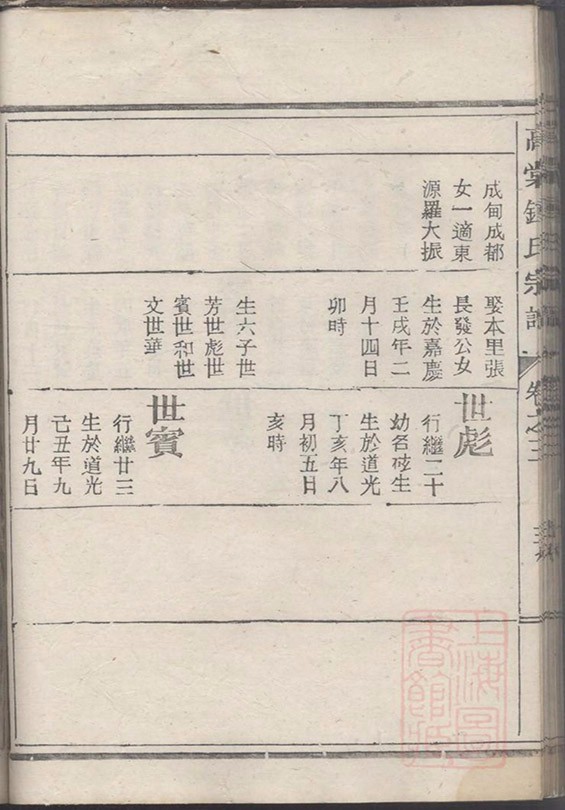 成甸成都
女一適東
源羅大振
娶本里張
長發公女
生於嘉慶
壬戌年二
月十四日
卯時
生六子世
芳世彪世
賓世和世
文世華
世彪
行繼二十
幼名砝生
生於道光
丁亥年八
月初五日
亥時
世賓
行繼廿三
生於道光
己丑年九
月廿九日
上海圖
書館藏